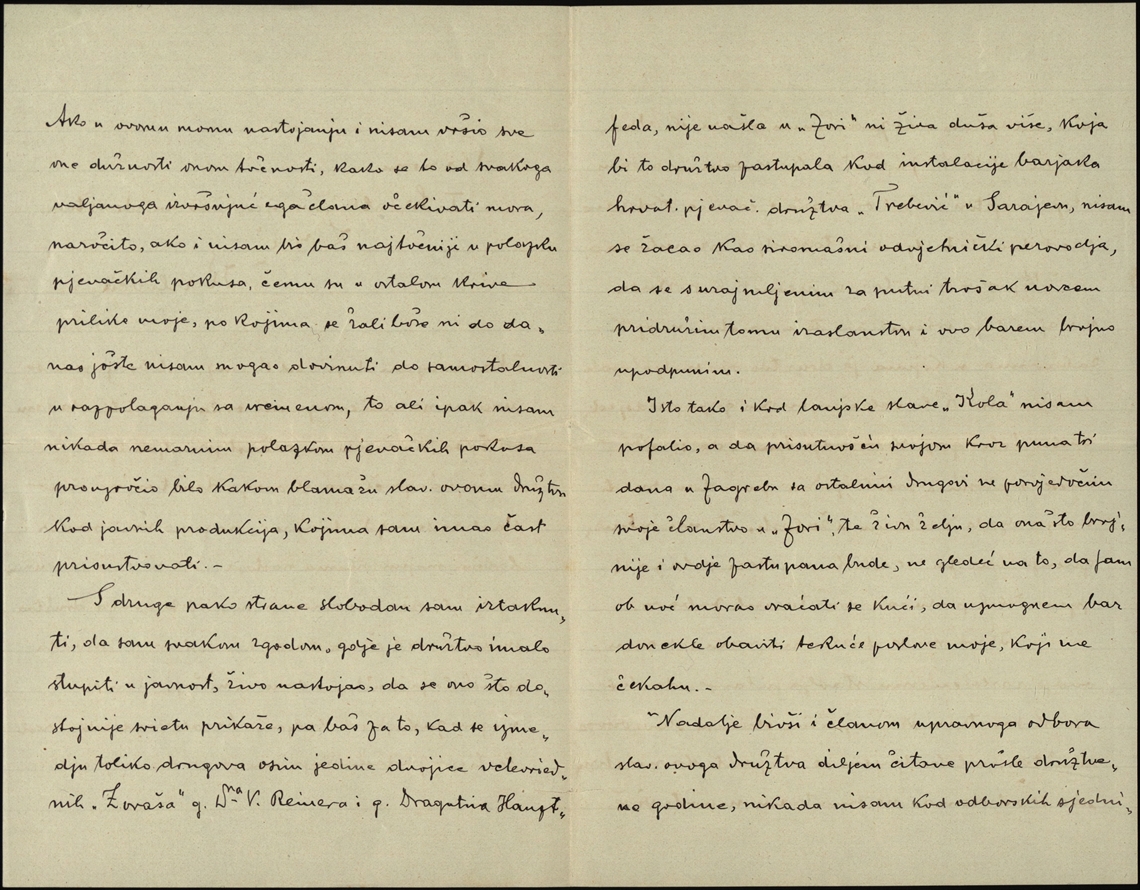 Ako u ovomu momu nastojanju i nisam vršio sve
one dužnosti onom točnosti, kako se to od svakoga
valjanoga izvršujućega člana očekivati mora,
naročito, ako i nisam bio baš najtočniji u polazku
pjevačkih pokusa, čemu su u ostalom krive
prilike moje, po kojima se žalibože ni do da„
nas jošte nisam mogao dovinuti do samostalnosti
u razpolaganju sa vremenom, to ali ipak nisam
nikada nemarnim polazkom pjevačkih pokusa
prouzročio bilo kakovu blamažu slav. ovomu družtvu
kod javnih produkcija, kojima sam imao čast
prisustvovati. –
S druge pako strane slobodan sam iztaknu„
ti, da sam svakom zgodom, gdje je družtvo imalo
stupiti u javnost, živo nastojao, da se ono što do„
stojnije svietu prikaže, pa baš za to, kad se izme„
dju toliko drugova osim jedine dvojice velevried„
nih „Zoraša" g. Dra V. Reinera i g. Dragutina Haupt„
feda, nije našla u „Zori" ni živa duša više, koja
bi to družtvo zastupala kod instalacije barjaka
hrvat. pjevač. družtva „Trebević" u Sarajevu, nisam
se žacao kao siromašni odvjetnički perovodja,
da se s uzajmljenim za putni trošak novcem
pridružim tomu izaslanstvu i ovo barem brojno
upodpunim.
Isto tako i kod lanjske slave „Kola" nisam
pofalio, a da prisutnošću svojom kroz puna tri
dana u Zagrebu sa ostalimi drugovi ne posvjedočim
svoje članstvo u „Zori", te živu želju, da ona što broj„
nije i ovdje zastupana bude, ne gledeć na to, da sam
ob noć morao vraćati se kući, da uzmognem bar
donekle obaviti tekuće poslove moje, koji me
čekahu. –
Nadalje bivši i članom upravnoga odbora
slav. ovoga družtva diljem čitave prošle družtve„
ne godine, nikada nisam kod odborskih sjedni„